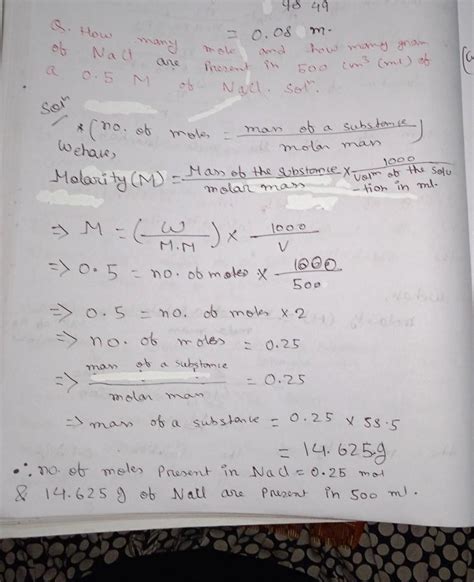 48 49
= 0.08 m.
Q. How many mole and how many gram
of NaCl are Present in 500 cm³ (ml) of
a 0.5 M of NaCl. Solⁿ.
Solⁿ
* (no. of moles = mass of a substance / molar mass)
We have,
Molarity (M) = Mass of the substance / molar mass × 1000 / Volm of the Solu
-tion in ml.
⇒ M = (W / M.M) × 1000 / V
⇒ 0.5 = no. of moles × 1000 / 500
⇒ 0.5 = no. of moles × 2
⇒ no. of moles = 0.25
⇒ mass of a substance / molar mass = 0.25
⇒ mass of a substance = 0.25 × 58.5
= 14.625g
∴ no. of moles Present in NaCl = 0.25 mol
& 14.625 g of NaCl are Present in 500 ml.